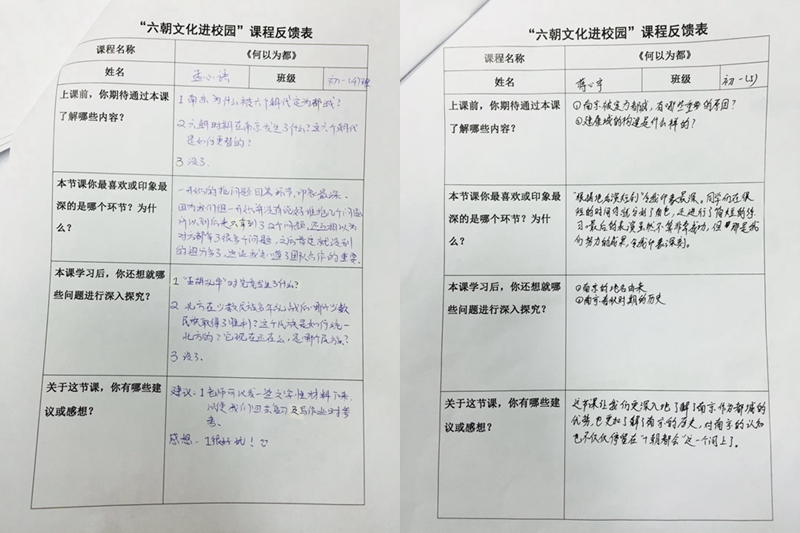 “六朝文化进校园”课程反馈表
课程名称
《何以为都》
姓名
班级
初一(4)班
上课前，你期待通过本课
了解哪些内容？
1 南京为什么被六个朝代定为都城？
2 六朝时期在南京发生了什么？这六个朝代
是如何更替的？
3 没了
本节课你最喜欢或印象最
深的是哪个环节？为什
么？
一开始的抢问题回答环节，印象最深
本课学习后，你还想就哪
些问题进行深入探究？
1 “五胡乱华”时究竟发生了什么？
2 北方在少数民族多年乱战后，哪个少数
民族取得了胜利？这个民族是如何统一
北方的？它现在还在么，是哪个民族？
3 没了.
关于这节课，你有哪些建
议或感想？
建议：1 老师可以发一些文字性材料下来，
以便我们回去复习及写作业时参
考。
感想：1 很好玩！
“六朝文化进校园”课程反馈表
课程名称
《何以为都》
姓名
蒋心宇
班级
初一(5)
上课前，你期待通过本课
了解哪些内容？
①南京被定为都城，有哪些重要的原因？
②建康城的构造是什么样的？
本节课你最喜欢或印象最
深的是哪个环节？为什
么？
“根据地名演短剧”令我印象最深。同学们在很
短的时间内就分配了角色，还进行了简短的练
习，最后的表演虽然不算非常成功，但那是我
们努力的成果，令我印象深刻。
本课学习后，你还想就哪
些问题进行深入探究？
①南京的地名由来
②南京春秋时期的历史
关于这节课，你有哪些建
议或感想？
这节课让我们更深入地了解了南京作为都城的
优势，也更加了解了南京的历史，对南京的认知
也不仅仅停留在“十朝都会”这一个词上了。